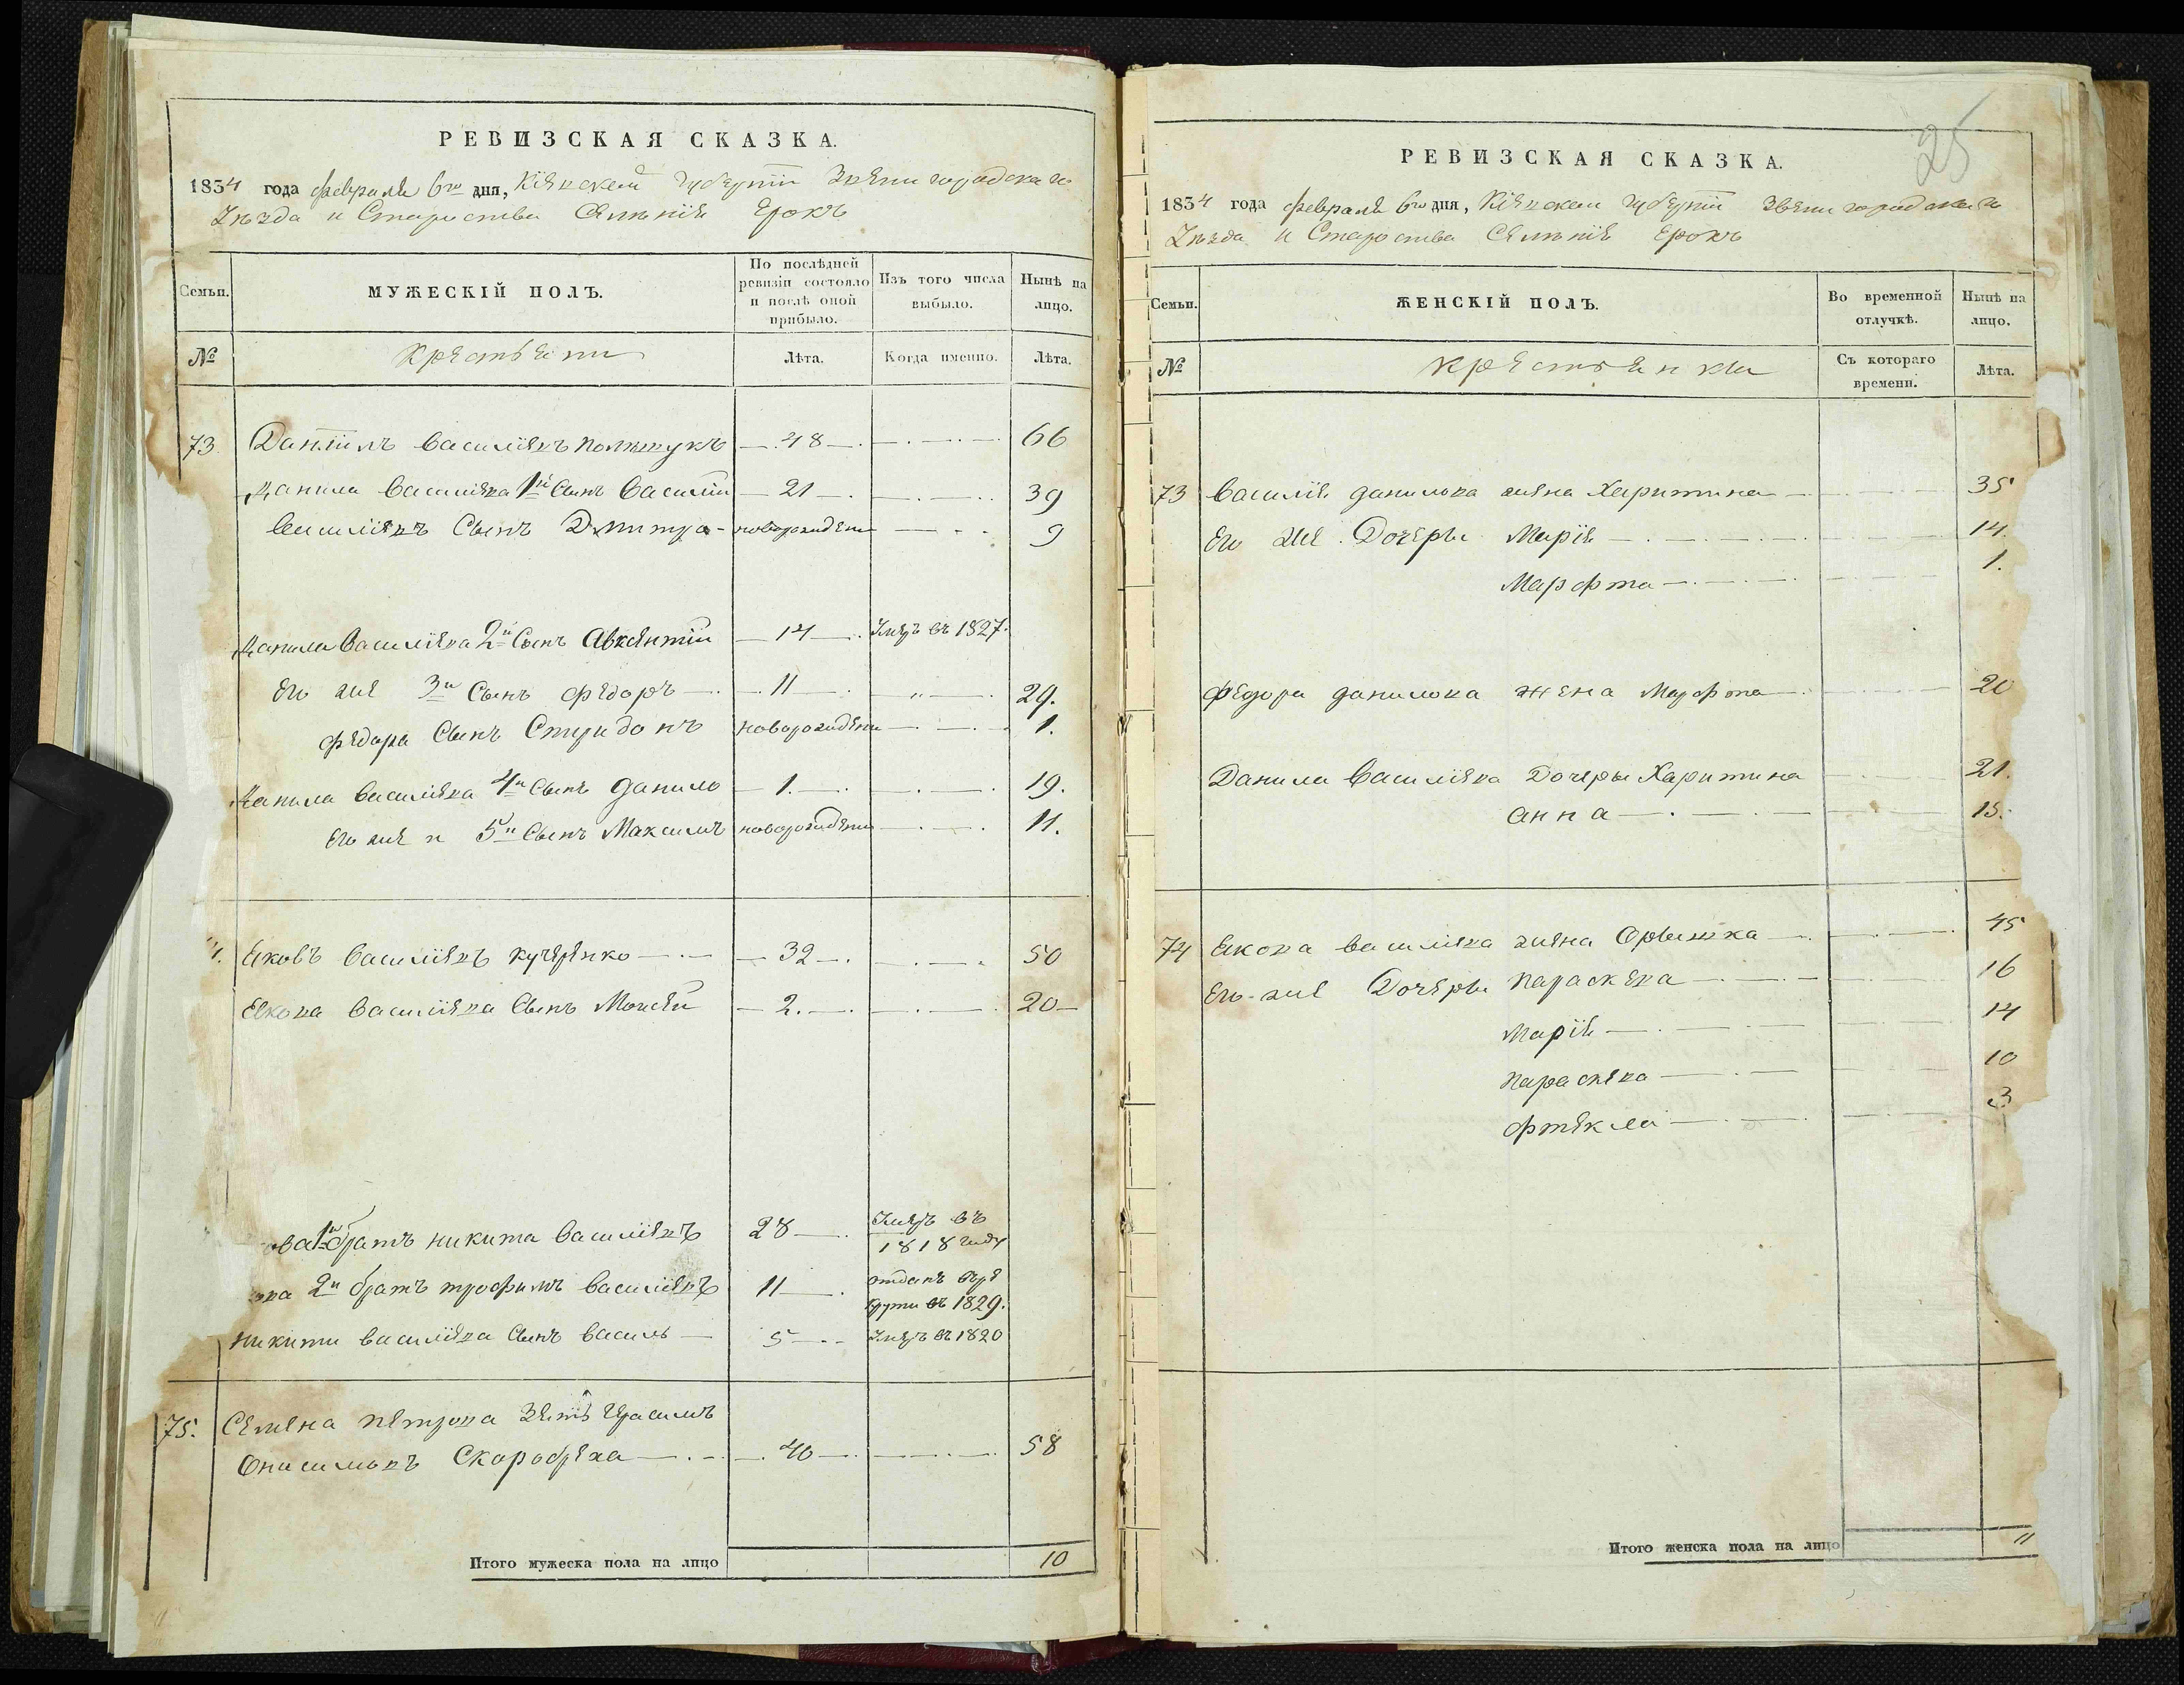 РЕВИЗСКАЯ СКАЗКА.
1834 года февраля 6го дня, Кіевской губерніи Звенигородскаго
Уезда и Староства Селенія Ерокъ
Семьи.
МУЖЕСКІЙ ПОЛЪ.
По послѣдней ревизіи состояло и послѣ оной прибыло.
Изъ того числа выбыло.
Нынѣ на лицо.
№
Крестьяни
Лѣта.
Когда именно.
Лѣта.
73. Даніилъ Василіевъ Полищукъ 48 66
Данила Василіева 1й Сынъ Василій 21 39
Василіевъ Сынъ Дмитра новорожденн 9
Данила Василіева 2й Сынъ Авксентій 14 Умеръ въ 1827.
Его же 3й Сынъ Федоръ 11 29.
Федора Сынъ Спиридонъ новорожденн 1.
Данила Василіева 4й Сынъ Данило 1. 19.
Его же и 5й Сынъ Максимъ новорожденн 11.
4. Яковъ Василіевъ Кучеренко 32 50
Якова Василіева Сынъ Моисей 2. 20
ова 1й братъ Никита Василіевъ 28 Умеръ въ
1818 году
ова 2й братъ Трофимъ Василіевъ 11 отданъ въ ре
круты въ 1829.
Никити Василіева Сынъ Василь 5 Умеръ въ 1820
75. Семена Петрова Зять Герасимъ
Онисимовъ Скоробреха 40 58
Итого мужеска пола на лицо 10
25
РЕВИЗСКАЯ СКАЗКА.
1834 года февраля 6го дня, Кіевской губерніи Звенигородскаго
Уезда и Староства Селенія Ерокъ
Семьи.
ЖЕНСКІЙ ПОЛЪ.
Во временной отлучкѣ.
Нынѣ на лицо.
№
Крестьянки
Съ котораго времени.
Лѣта.
73 Василія Данилова жена Харитина 35
Его же Дочеры Марія 14.
Марфта 1.
Федора Данилова жена Марфта 20
Данила Василіева Дочеры Харитина 21.
Анна 15.
74 Якова Василіева жена Орышка 45
Его же Дочеры Параскева 16
Марія 14
Параскева 10
Фтекла 3
Итого женска пола на лицо 11